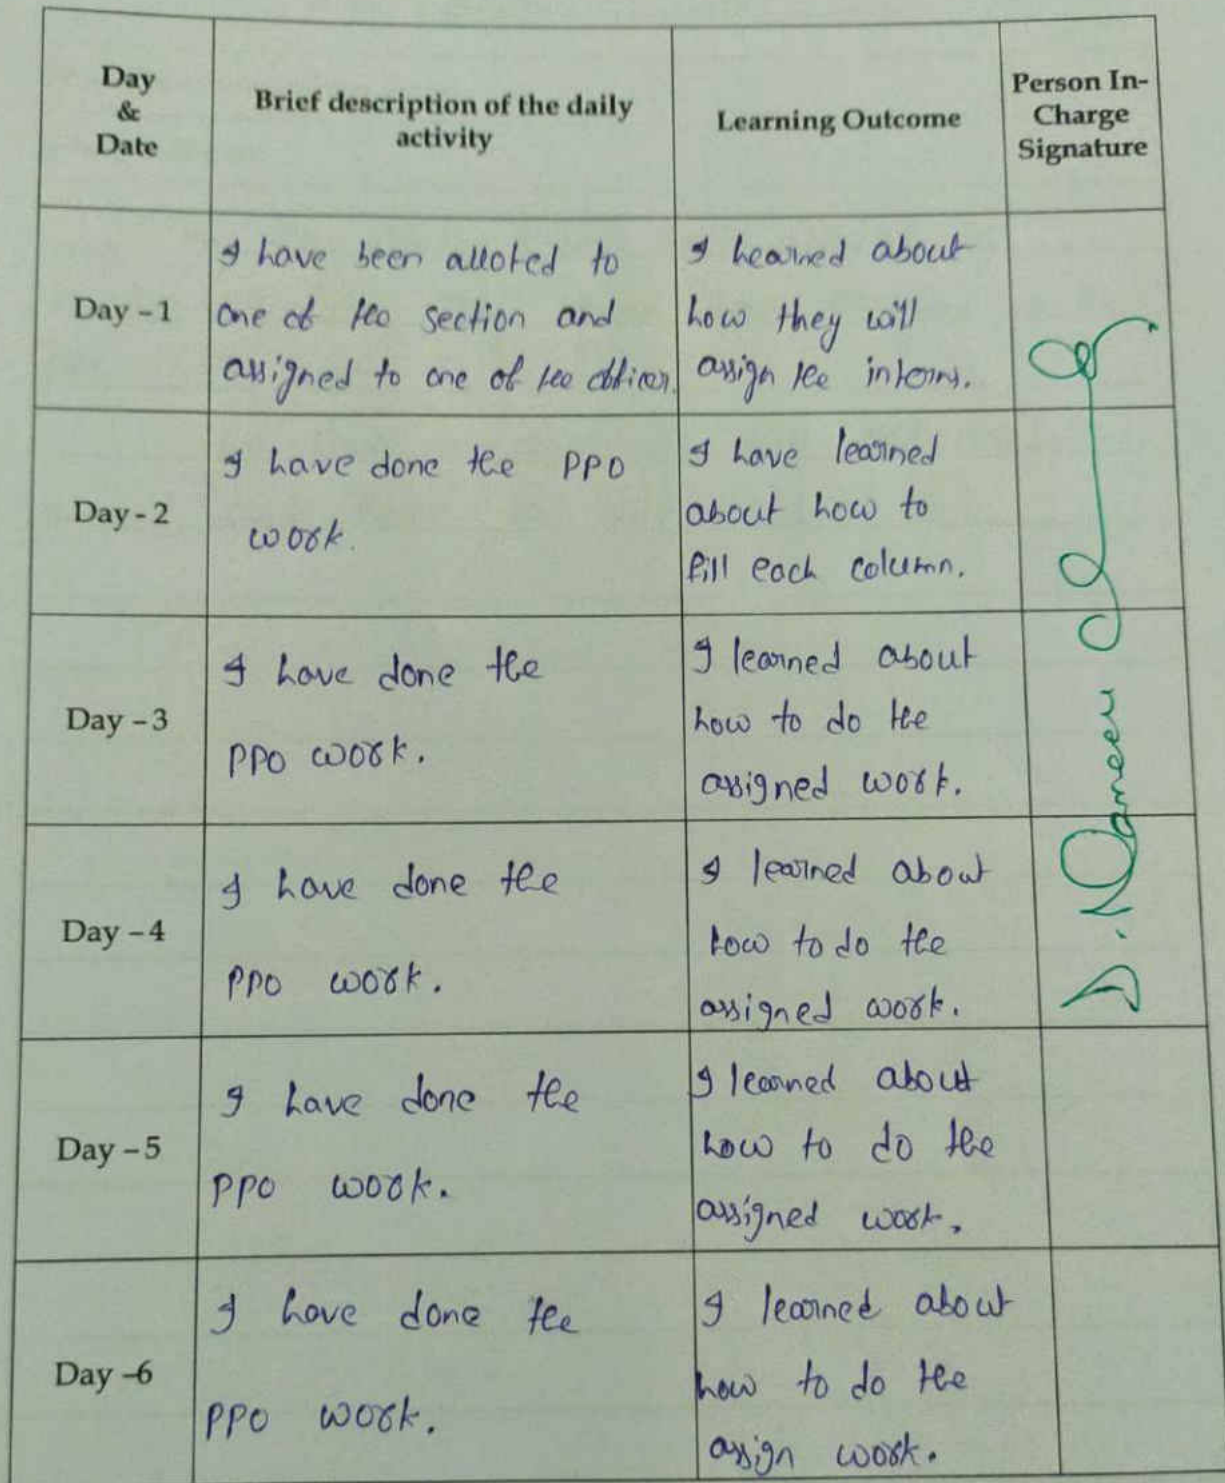 Day
&
Date
Brief description of the daily
activity
Learning Outcome
Person In-
Charge
Signature
Day - 1
I have been alloted to
one of the section and
assigned to one of the officer.
I learned about
how they will
assign the interns.
Day - 2
I have done the PPO
work.
I have learned
about how to
fill each column.
Day - 3
I have done the
PPO work.
I learned about
how to do the
assigned work.
Day - 4
I have done the
PPO work.
I learned about
how to do the
assigned work.
Day - 5
I have done the
PPO work.
I learned about
how to do the
assigned work.
Day -6
I have done the
PPO work.
I learned about
how to do the
assign work.